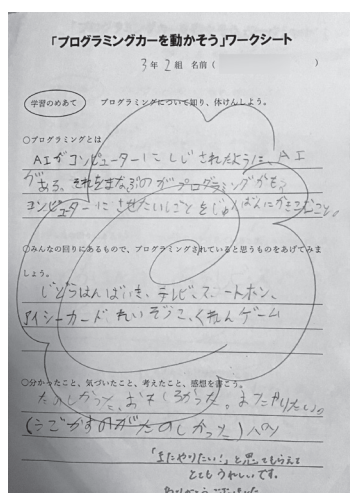 「プログラミングカーを動かそう」ワークシート
3年2組 名前( )
学習のめあて プログラミングについて知り、体けんしよう。
○プログラミングとは
AIがコンピューターにしじされたように、AI
がある、それをまなぶのがプログラミング
コンピューターにさせたいしごとをじゅんばんにかきこむこと。
○みんなの回りにあるもので、プログラミングされていると思うものをあげてみま
しょう。
じどうはんばいき、テレビ、スマートホン、
アイシーカード れいぞうこ、くれんゲーム
○分かったこと、気づいたこと、考えたこと、感想を書こう。
たのしかった、おもしろかった。またやりたい。
(うごかすのがたのしかった)
「またやりたい!」と思ってもらえて
とてもうれしいです。
ありがとうございました